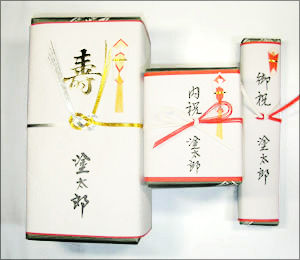 寿
塗太郎
内祝
塗太郎
御祝
塗太郎